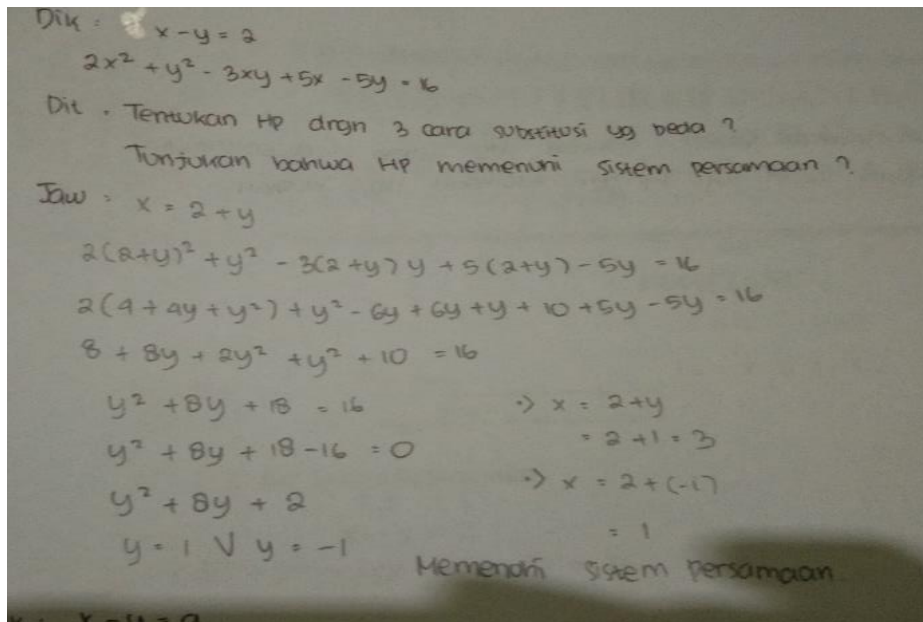 Dik : x - y = 2
2x² + y² - 3xy + 5x - 5y = 16
Dit : Tentukan Hp drgn 3 cara substitusi yg beda ?
Tunjukan bahwa HP memenuhi sistem persamaan ?
Jaw : x = 2 + y
2(2+y)² + y² - 3(2+y)y + 5(2+y) - 5y = 16
2(4 + 4y + y²) + y² - 6y + 6y + y + 10 + 5y - 5y = 16
8 + 8y + 2y² + y² + 10 = 16
y² + 8y + 18 = 16
y² + 8y + 18 - 16 = 0
y² + 8y + 2
y = 1 V y = -1
·> x = 2+y
= 2+1 = 3
·> x = 2+(-1)
= 1
Memenuhi sistem persamaan
x - y = 2